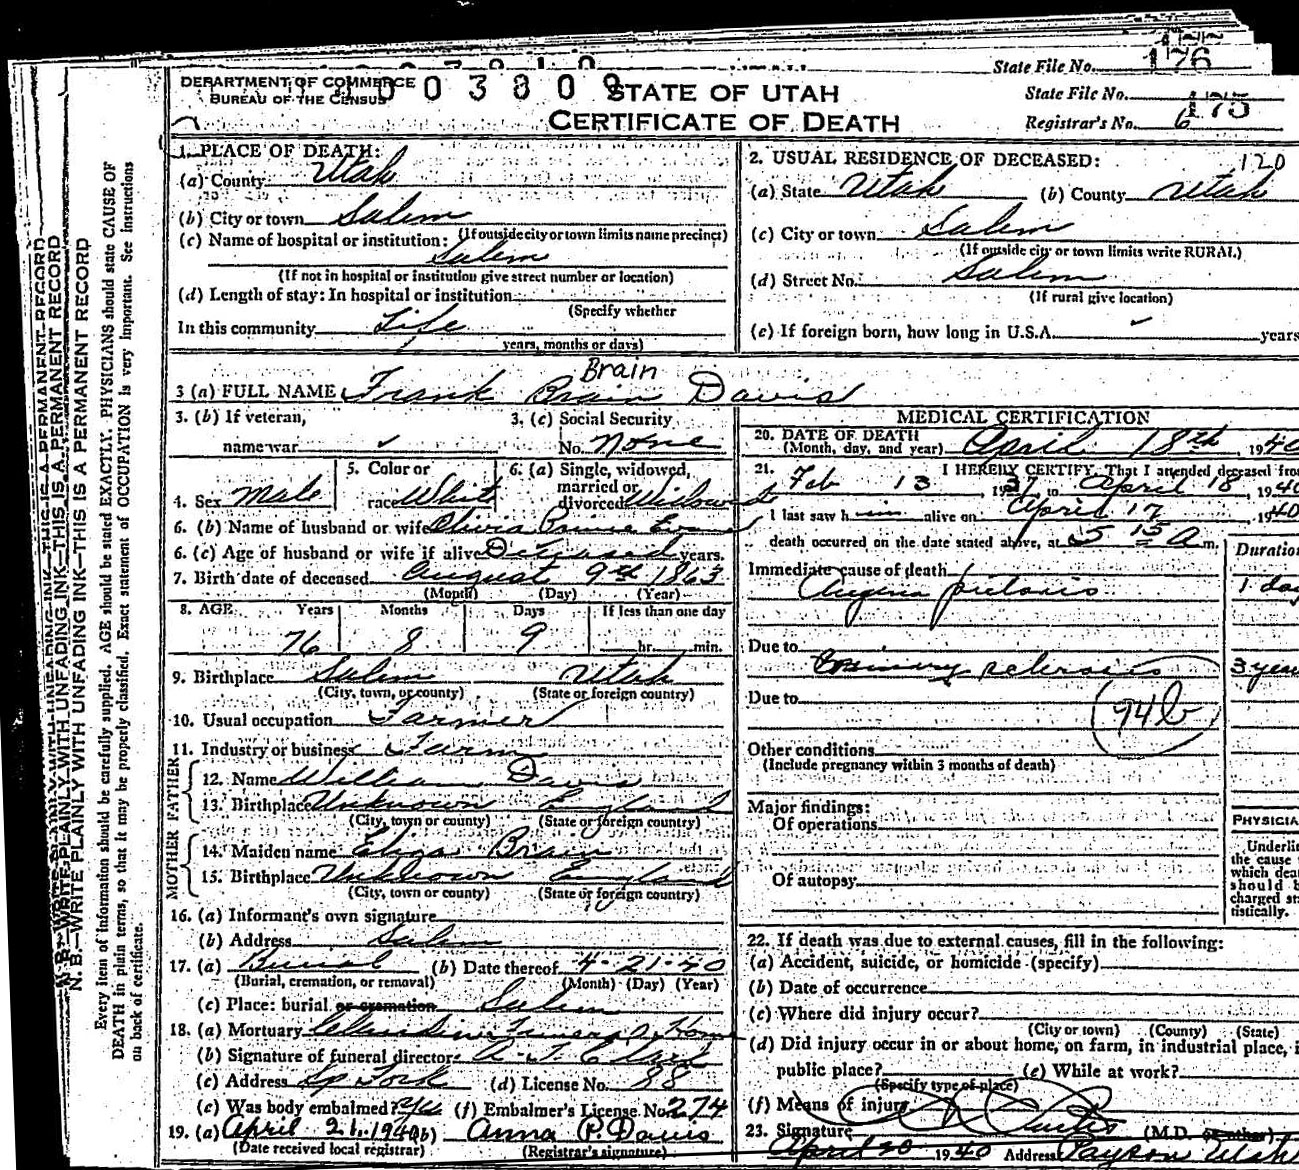 State File No. 176
DEPARTMENT OF COMMERCE
BUREAU OF THE CENSUS
STATE OF UTAH
State File No. 175
CERTIFICATE OF DEATH
Registrar's No. 6
1. PLACE OF DEATH:
(a) County Utah
(b) City or town Salem
(If outside city or town limits name precinct)
(c) Name of hospital or institution:
Salem
(If not in hospital or institution give street number or location)
(d) Length of stay: In hospital or institution
(Specify whether
In this community Life
years, months or days)
2. USUAL RESIDENCE OF DECEASED: 120
(a) State Utah (b) County Utah
(c) City or town Salem
(If outside city or town limits write RURAL)
(d) Street No. Salem
(If rural give location)
(e) If foreign born, how long in U.S.A. years
Brain
3 (a) FULL NAME Frank Brain Davis
3. (b) If veteran,
name war
3. (c) Social Security
No. None
4. Sex Male
5. Color or
race White
6. (a) Single, widowed,
married or
divorced Widowed
6. (b) Name of husband or wife Olivia
6. (c) Age of husband or wife if alive Deceased years.
7. Birth date of deceased August 9th 1863
(Month) (Day) (Year)
8. AGE Years Months Days If less than one day
76 8 9 hr. min.
9. Birthplace Salem Utah
(City, town, or county) (State or foreign country)
10. Usual occupation Farmer
11. Industry or business Farm
FATHER
12. Name William Davis
13. Birthplace Unknown England
(City, town or county) (State or foreign country)
MOTHER
14. Maiden name Eliza Brain
15. Birthplace Unknown England
(City, town or county) (State or foreign country)
16. (a) Informant's own signature
(b) Address Salem
17. (a) Burial (b) Date thereof 4-21-40
(Burial, cremation, or removal) (Month) (Day) (Year)
(c) Place: burial or cremation Salem
18. (a) Mortuary Funeral Home
(b) Signature of funeral director
(c) Address Sp Fork (d) License No. 88
(e) Was body embalmed? yes (f) Embalmer's License No. 274
19. (a) April 21, 1940 (b) Anna P. Davis
(Date received local registrar) (Registrar's signature)
MEDICAL CERTIFICATION
20. DATE OF DEATH
(Month, day, and year) April 18th, 1940
21. I HEREBY CERTIFY, That I attended deceased from
Feb 13, 1937, to April 18, 1940
I last saw him alive on April 17, 1940
death occurred on the date stated above, at 5 15 A m.
Duration
Immediate cause of death
Angina pectoris 1 day
Due to
Coronary sclerosis 3 years
Due to
94b
Other conditions
(Include pregnancy within 3 months of death)
Major findings:
Of operations
Of autopsy
PHYSICIA
Underlin
the cause
which dea
should b
charged sta
tistically.
22. If death was due to external causes, fill in the following:
(a) Accident, suicide, or homicide (specify)
(b) Date of occurrence
(c) Where did injury occur?
(City or town) (County) (State)
(d) Did injury occur in or about home, on farm, in industrial place, i
public place? (e) While at work?
(Specify type of place)
(f) Means of injury
23. Signature Curtis (M.D.
April 20 1940 Address Payson Utah
N. B.—WRITE PLAINLY WITH UNFADING INK—THIS IS A PERMANENT RECORD
Every item of information should be carefully supplied. AGE should be stated EXACTLY. PHYSICIANS should state CAUSE OF
DEATH in plain terms, so that it may be properly classified. Exact statement of OCCUPATION is very important. See instructions
on back of certificate.